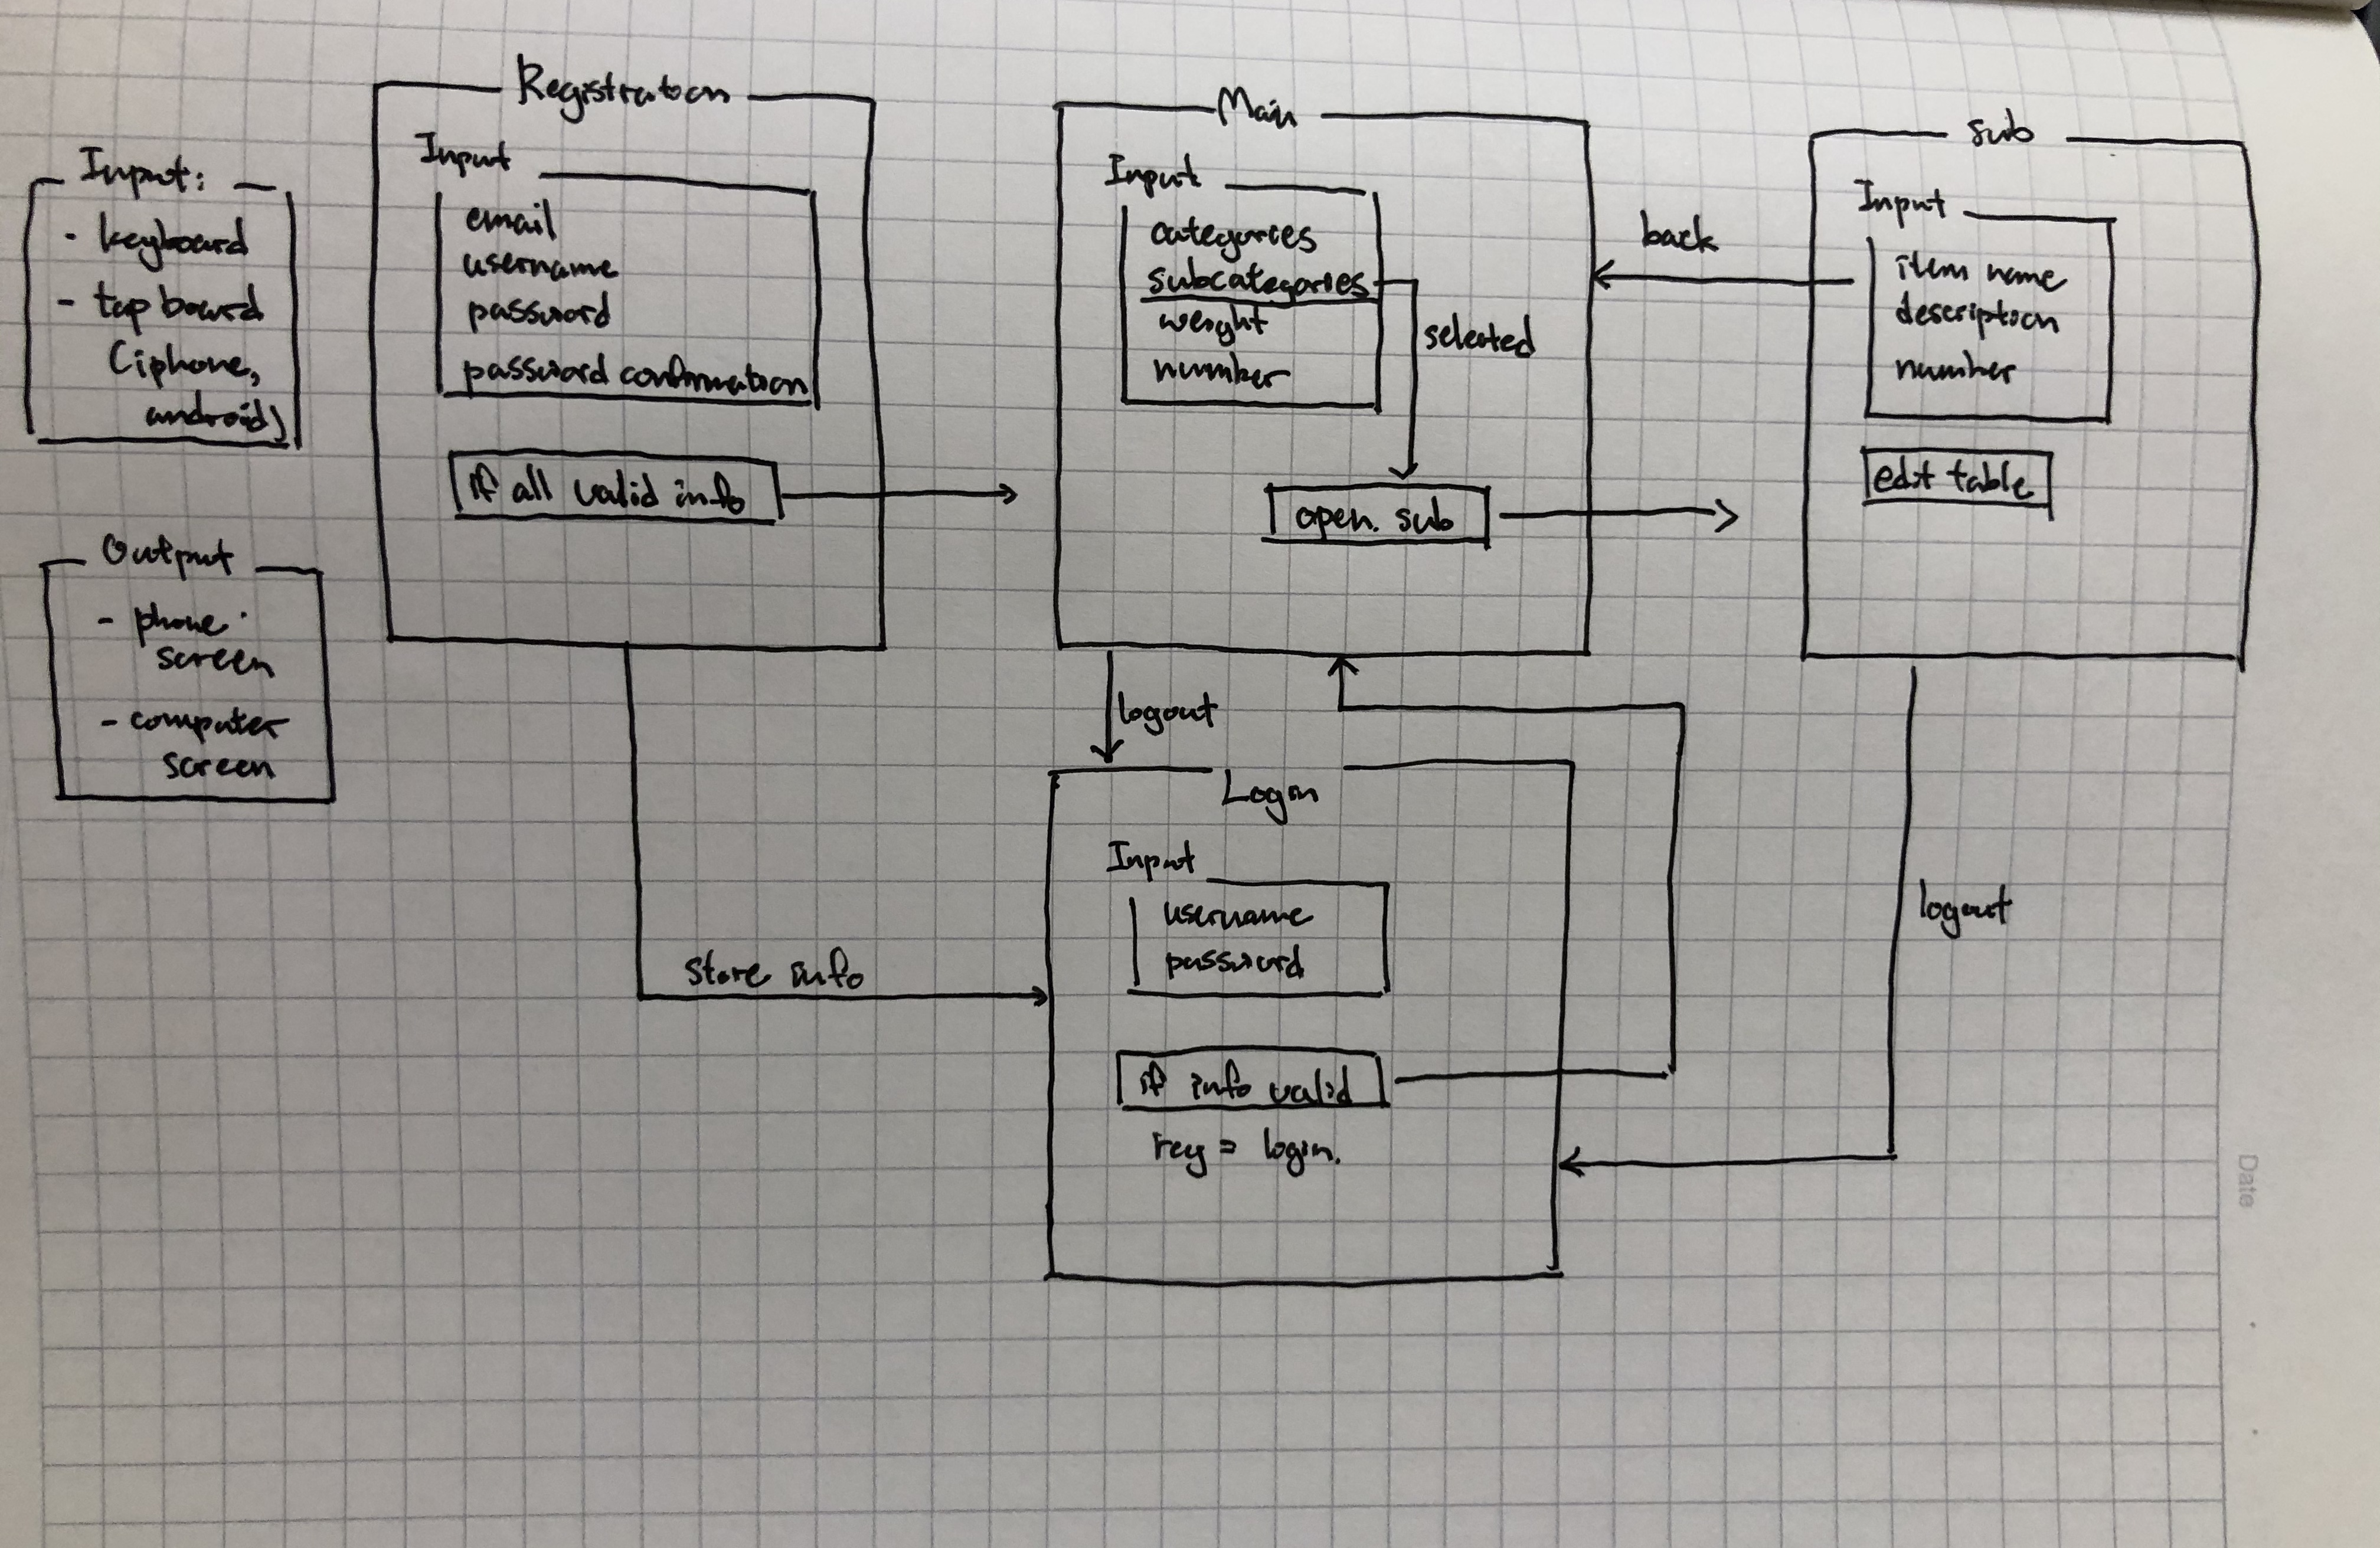 Input:
- keyboard
- tap board
(iphone,
android)
Output
- phone
screen
- computer
screen
Registration
Input
email
username
password
password confirmation
if all valid info
store info
Main
Input
categories
subcategories
weight
number
selected
open sub
logout
back
sub
Input
item name
description
number
edit table
logout
Login
Input
username
password
if info valid
reg = login.
Date